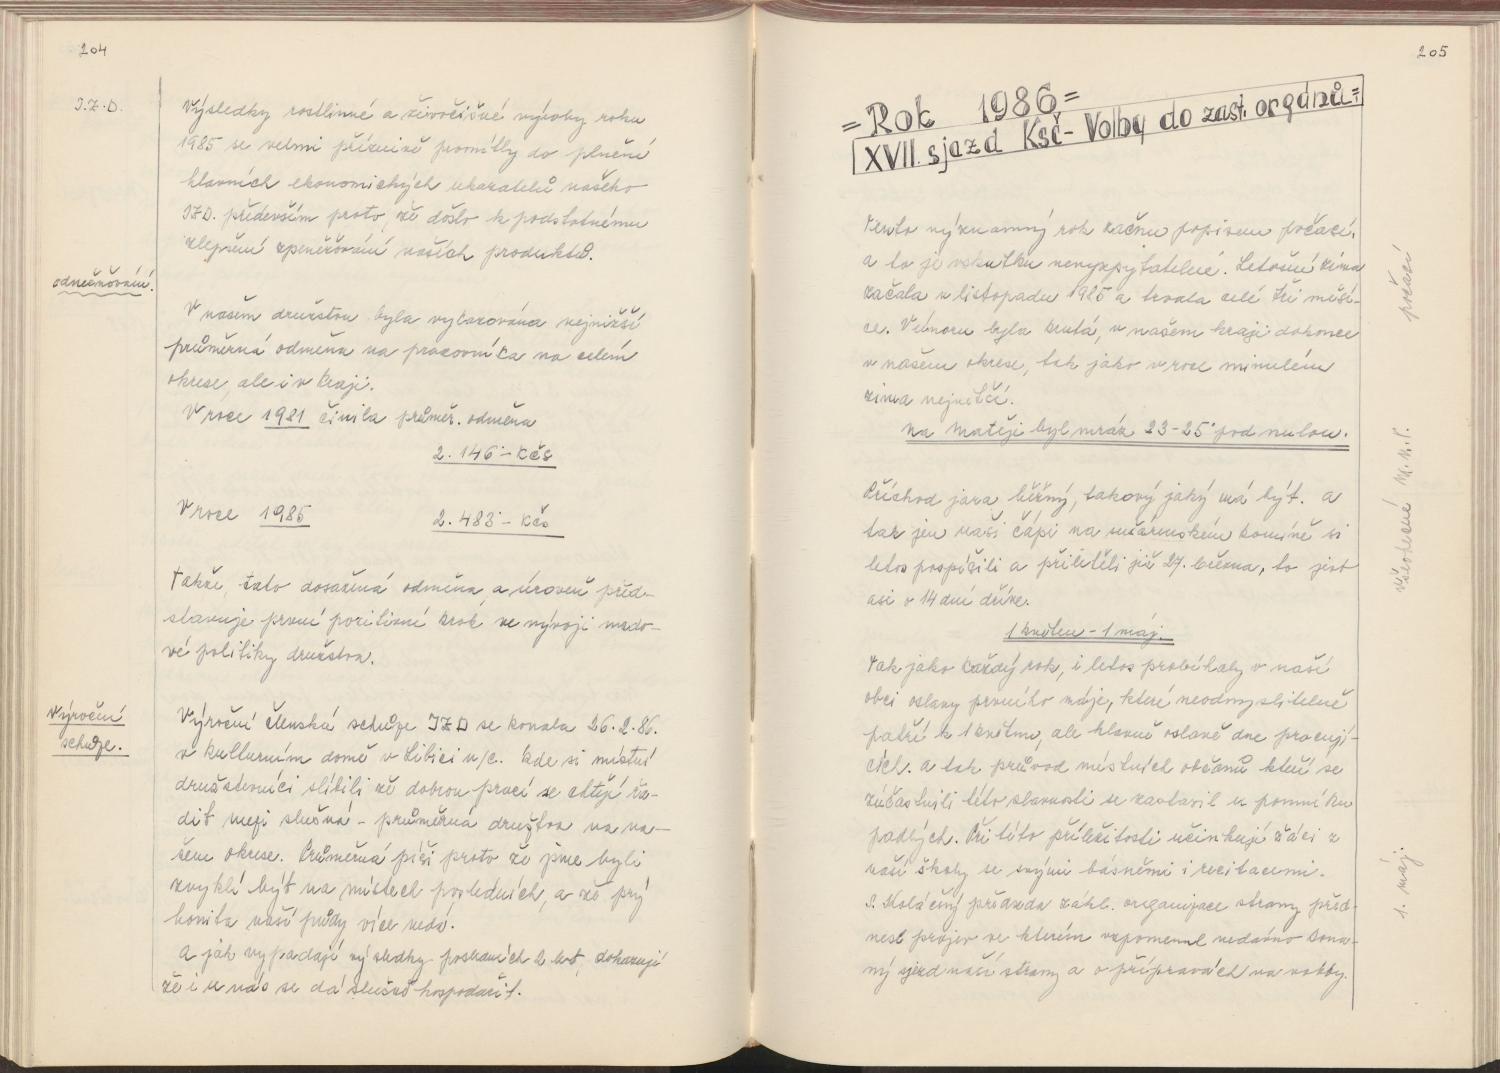 204
J.Z.D.
Výsledky rostlinné a živočišné výroby roku
1985 se velmi příznivě promítly do plnění
hlavních ekonomických ukazatelů našeho
JZD. především proto, že došlo k podstatnému
zlepšení zpeněžování našich produktů.
odměňování!
V našem družstvu byla vykazována nejnižší
průměrná odměna na pracovníka na celém
okrese, ale i v kraji.
V roce 1981 činila průměr. odměna
2.146 - Kčs
V roce 1985 2.483 - Kčs
Takže, tato dosažená odměna, a úroveň před-
stavuje první pozitivní krok, ve vývoji mzdo-
vé politiky družstva.
Výroční
schůze.
Výroční členská schůze JZD se konala 26.2.86.
v kulturním domě v Libici n/c. kde si místní
družstevníci slíbili že dobrou prací se chtějí řa-
dit mezi slušná - průměrná družstva na na-
šem okrese. Průměrná píši proto že jsme byli
zvyklí být na místech posledních, a že prý
bonita naší půdy více nedá.
A jak vypadají výsledky posledních 2 let, dokazují
že i u nás se dá slušně hospodařit.
205
= Rok 1986 =
XVII. sjezd Ksč - Volby do zast. orgánů =
Tento významný rok začnu popisem počasí,
a to je vskutku nevyzpytatelné. Letošní zima
začala v listopadu 1985 a trvala celé tři měsí-
ce. V únoru byla krutá, v našem kraji dokonce
v našem okrese, tak jako v roce minulém
zima největší.
na Matěje byl mráz 23-25° pod nulou.
Příchod jara běžný, takový jaký má být. a
tak jen naši čápi na sušárenském komíně si
letos pospíšili a přiletěli již 27. března, to jest
asi o 14 dní dříve.
1 květen - 1 máj.
Tak jako každý rok, i letos probíhaly v naší
obci oslavy prvního máje, které neodmyslitelně
patří k 1 květnu, ale hlavně oslavě dne pracují-
cích. A tak průvod místních občanů kteří se
zúčastnili této slavnosti se zastavil u pomníku
padlých. Při této příležitosti účinkují žáci z
naší školy se svými básněmi i recitacemi.
S. Koláčný předseda zákl. organizace strany před-
nesl projev ve kterém vzpomenul nedávno kona-
ný sjezd naší strany a o přípravách na volby.
počasí
všeobecné
1. máj.